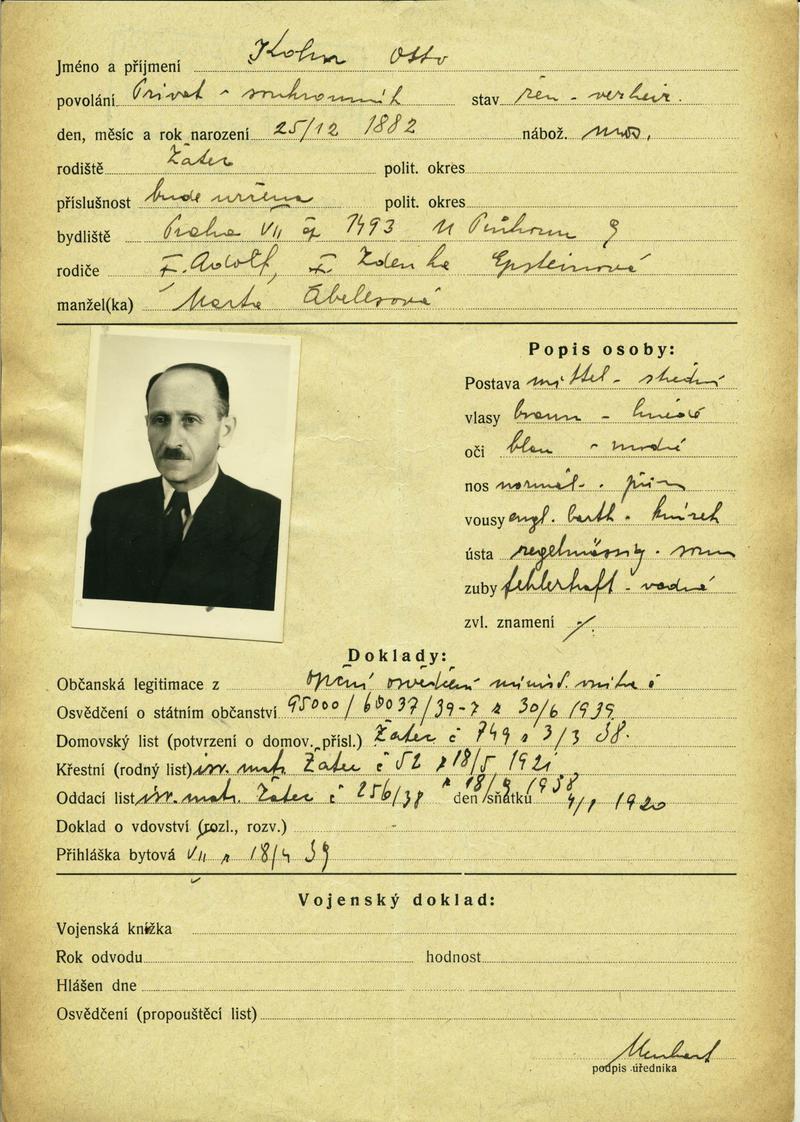 Jméno a příjmení Kohn Otto
povolání Privat - soukromník stav žen. - verheir.
den, měsíc a rok narození 25/12 1882 nábož. mos.
rodiště Žatec polit. okres
příslušnost bude určena polit. okres
bydliště Praha VII čp 1493 U Průhonu 9
rodiče Adolf, Zdenka Epsteinová
manžel(ka) Marta Abelesová
Popis osoby:
Postava mittel - střední
vlasy braun - hnědé
oči blau - modré
nos normal -
vousy engl. barth - knírek
ústa regelmässig - soum
zuby fehlerhaft - vadné
zvl. znamení /.
Doklady:
Občanská legitimace z opční osvědčení minist. vnitra č
Osvědčení o státním občanství 95000/68037/39-7 z 30/6 1939
Domovský list (potvrzení o domov. přísl.) Žatec č 749 z 3/3 38.
Křestní (rodný list) isr. matr. Žatec č 52 z 18/5 1921
Oddací list isr. matr. Žatec č 256/38 z 18/9 1938 den sňatku 4/1 1920
Doklad o vdovství (rozl., rozv.)
Přihláška bytová VII z 18/4 39
Vojenský doklad:
Vojenská knížka
Rok odvodu hodnost
Hlášen dne
Osvědčení (propouštěcí list)
podpis úředníka